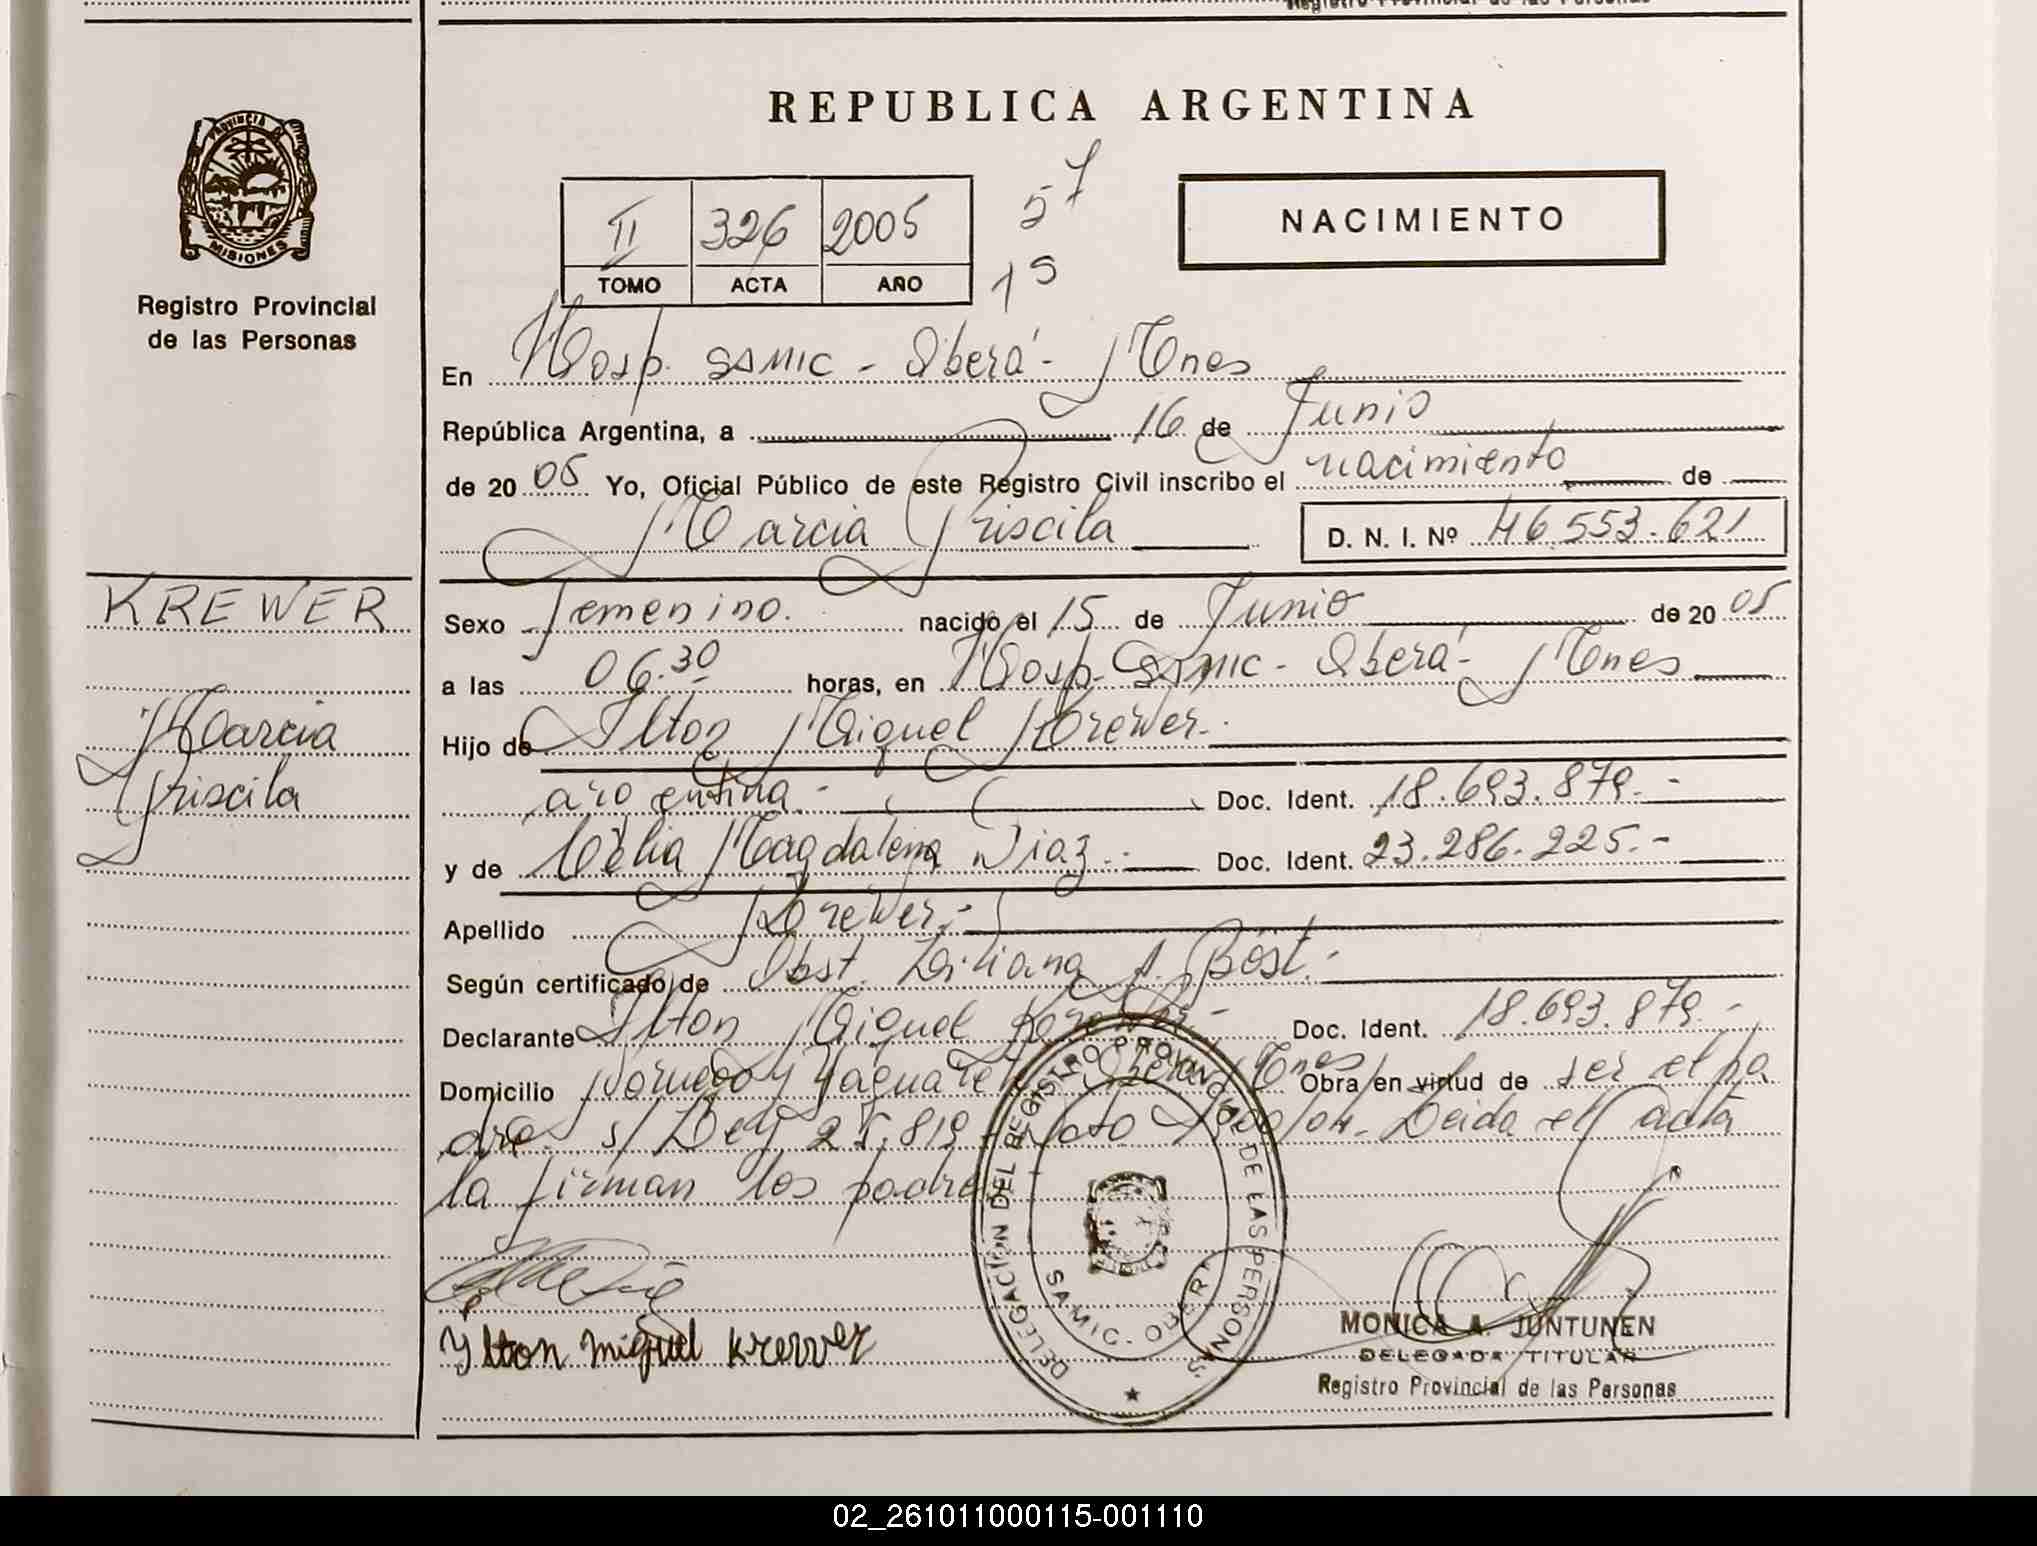 Registro Provincial de las Personas
PROVINCIA D
MISIONES
Registro Provincial
de las Personas
REPUBLICA ARGENTINA
II 326 2005
TOMO ACTA AÑO
57
15
NACIMIENTO
En Hosp. SAMIC - Oberá - Mnes
República Argentina, a 16 de Junio
de 20 05 Yo, Oficial Público de este Registro Civil inscribo el nacimiento de
Marcia Priscila D. N. I. Nº 46.553.621
KREWER
Marcia
Priscila
Sexo femenino. nacido el 15 de Junio de 20 05
a las 06.30 horas, en Hosp. SAMIC - Oberá - Mnes
Hijo de Ilton Miguel Krewer.
argentina.- Doc. Ident. 18.693.879.-
y de Célia Magdalena Diaz.- Doc. Ident. 23.286.225.-
Apellido Krewer.-
Según certificado de Obst. Liliana A. Böst.-
Declarante Ilton Miguel Krewer.- Doc. Ident. 18.693.879.-
Domicilio Noruega y Yaguareté Oberá Mnes Obra en virtud de ser el pa
dre s/ Ley 25.819 /04. Leida el acta
la firman los padres
Ylton Miguel Krewer
DELEGACIÓN DEL REGISTRO PROVINCIAL DE LAS PERSONAS
SAMIC. OBERA
MONICA A. JUNTUNEN
DELEGADA TITULAR
Registro Provincial de las Personas
02_261011000115-001110